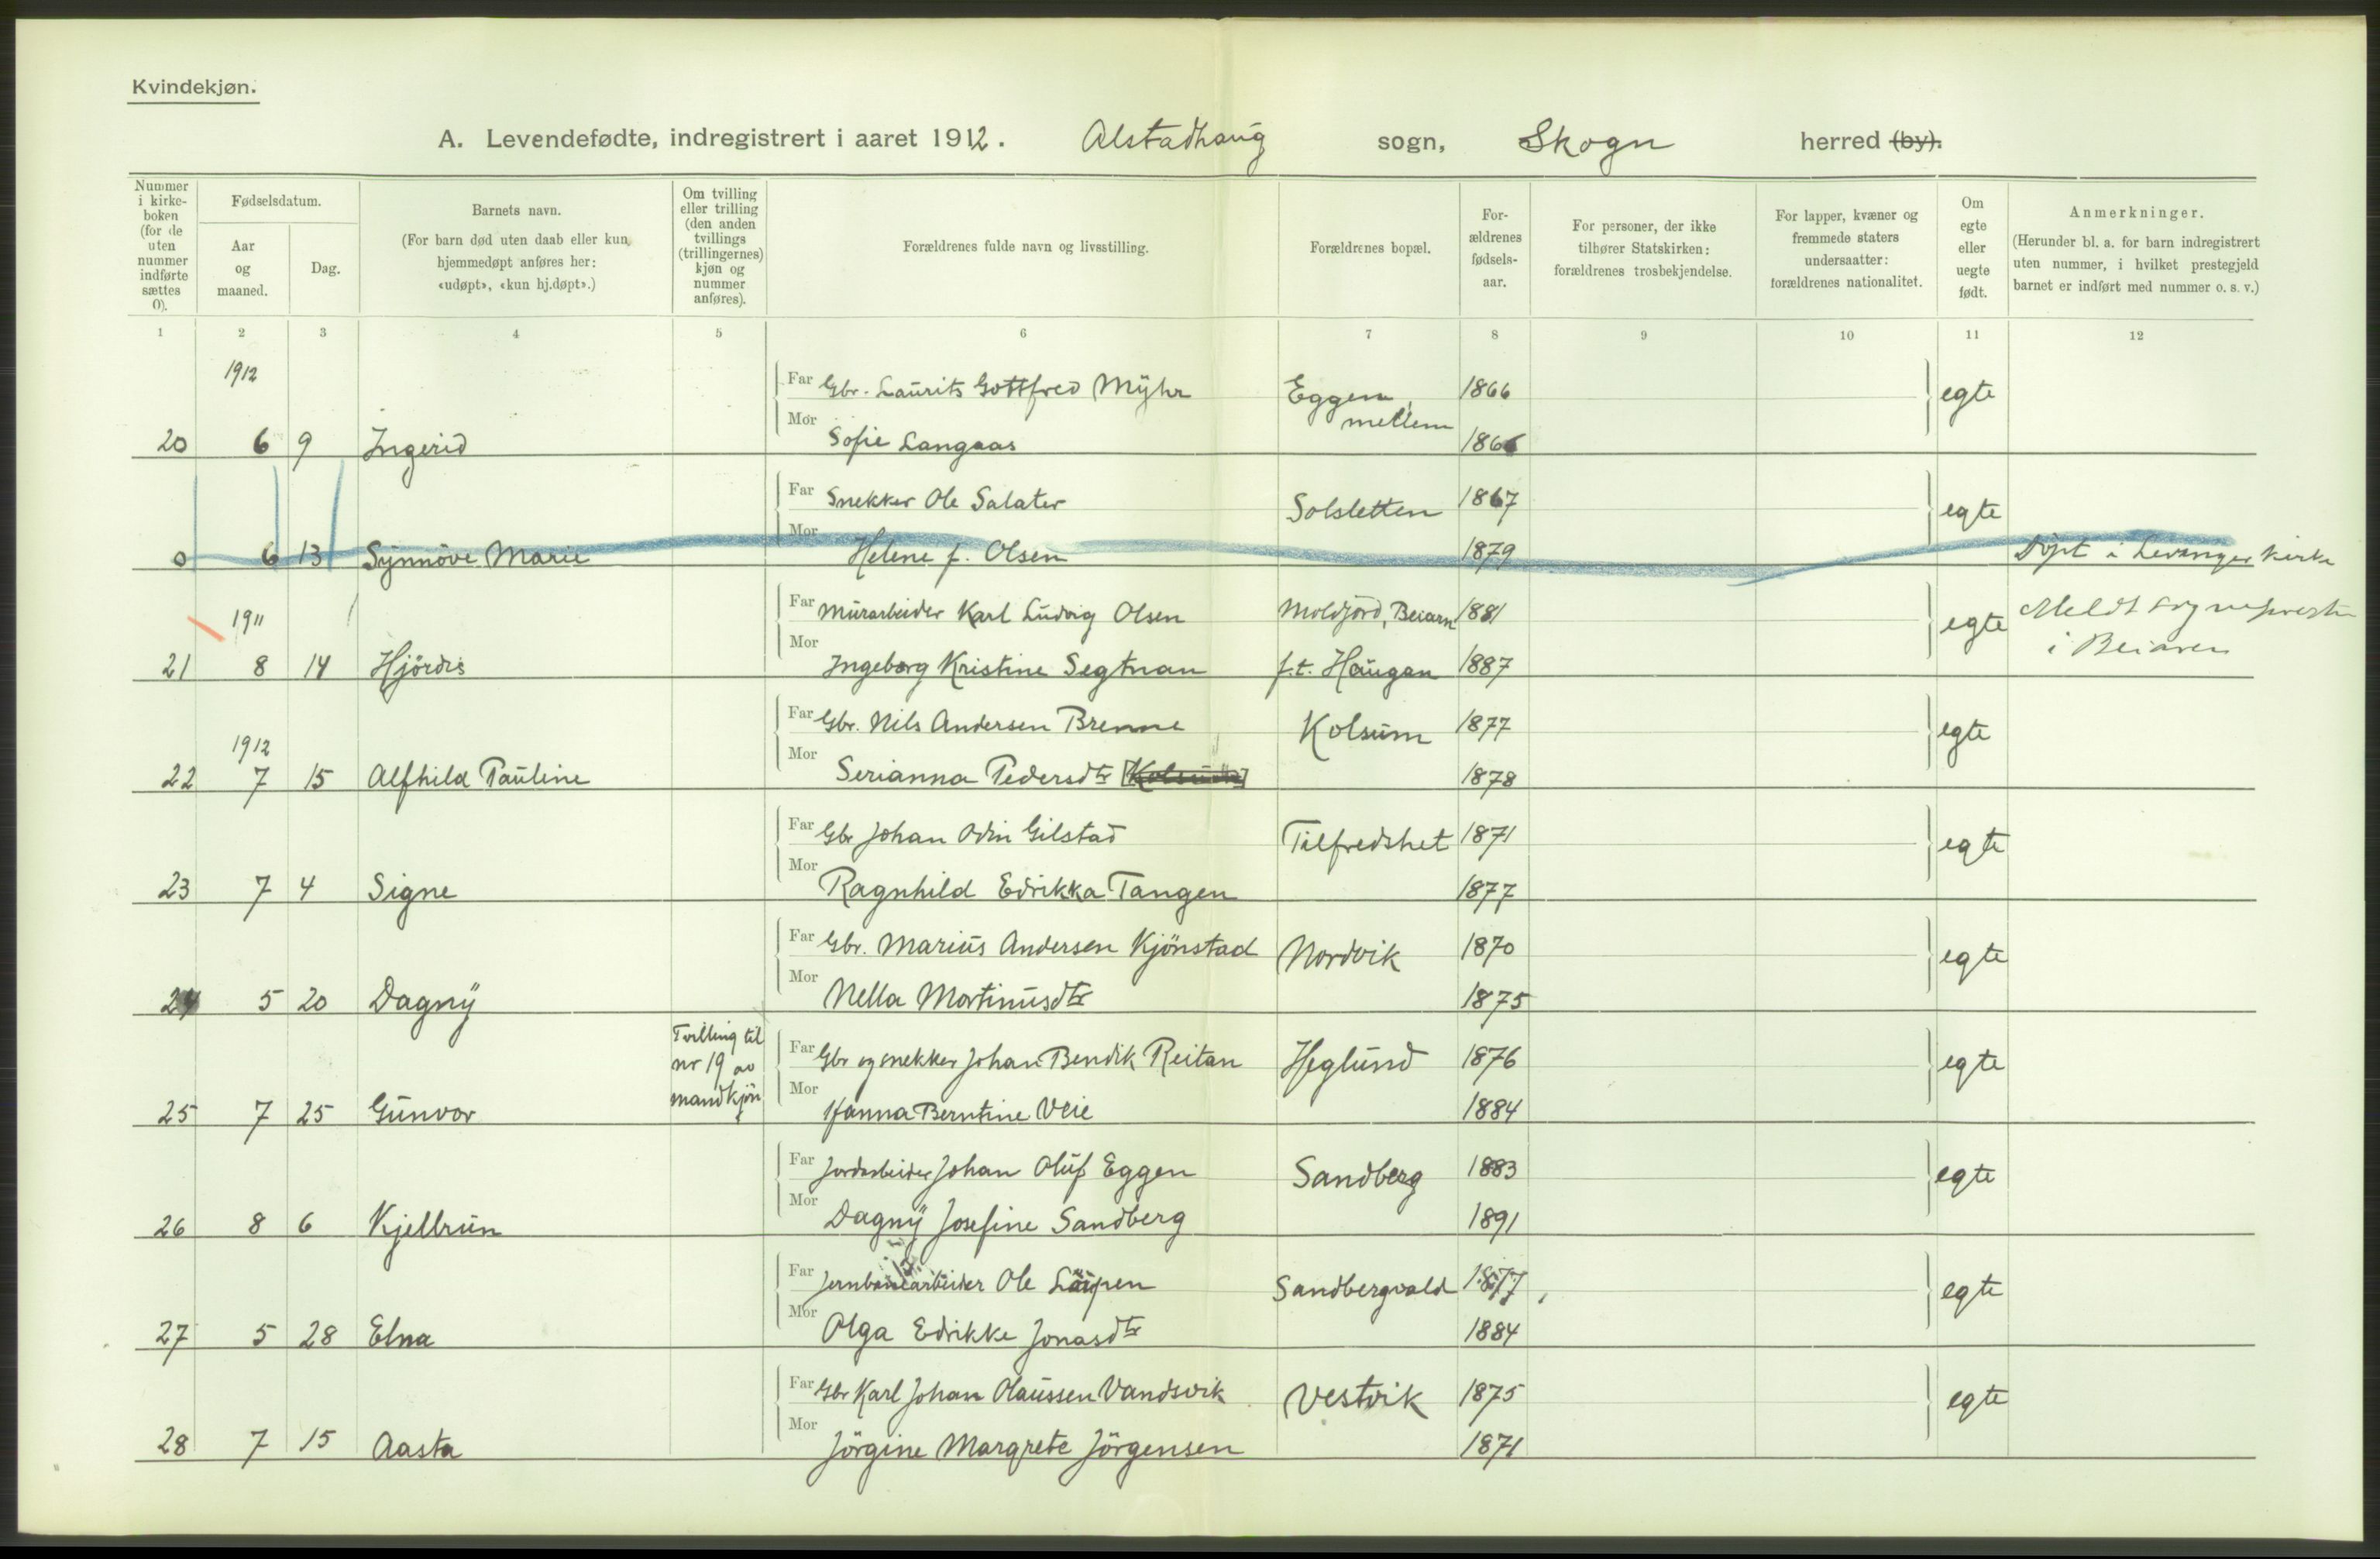 Kvindekjøn.
A. Levendefødte, indregistrert i aaret 1912. Alstadhaug sogn, Skogn herred (by).
Nummer i kirke- boken (for de uten nummer indførte sættes 0).
Fødselsdatum.
Aar og maaned.
Dag.
Barnets navn.
(For barn død uten daab eller kun hjemmedøpt anføres her: «udøpt», «kun hj.døpt».)
Om tvilling eller trilling (den anden tvillings (trillingernes) kjøn og nummer anføres).
Forældrenes fulde navn og livsstilling.
Forældrenes bopæl.
For- ældrenes fødsels- aar.
For personer, der ikke tilhører Statskirken: forældrenes trosbekjendelse.
For lapper, kvæner og fremmede staters undersaatter: forældrenes nationalitet.
Om egte eller uegte født.
Anmerkninger.
(Herunder bl. a. for barn indregistrert uten nummer, i hvilket prestegjeld barnet er indført med nummer o. s. v.)
1 2 3 4 5 6 7 8 9 10 11 12
1912
Far Gbr. Laurits Gottfred Myhr Eggen, mellem 1866 egte
20 6 9 Ingerid Mor Sofie Langaas 1866
Far Snekker Ole Salater Solsletten 1867 egte
0 6 13 Synnöve Marie Mor Helene f. Olsen 1879 Döpt i Levanger kirke
1911
Far Murarbeider Karl Ludvig Olsen Moldjord, Beiarn 1881 egte Meldt sognepresten
21 8 14 Hjördis Mor Ingeborg Kristine Segtnan f.t. Haugan 1887 i Beiaren
1912
Far Gbr. Nils Andersen Brenne Kolsum 1877 egte
22 7 15 Alfhild Pauline Mor Serianna Pedersdtr [Kolsum] 1878
Far Gbr Johan Odin Gilstad Tilfredshet 1871 egte
23 7 4 Signe Mor Ragnhild Edrikka Tangen 1877
Far Gbr. Marius Andersen Kjönstad Nordvik 1870 egte
24 5 20 Dagny Mor Nella Martinusdtr 1875
Tvilling til nr 19 av mandkjön
Far Gbr og snekker Johan Bendik Reitan Heglund 1876 egte
25 7 25 Gunvor Mor Hanna Berntine Veie 1884
Far Jordarbeider Johan Oluf Eggen Sandberg 1883 egte
26 8 6 Kjellrun Mor Dagny Josefine Sandberg 1891
Far Jernbanearbeider Ole Sandbergvald 1877 egte
27 5 28 Elna Mor Olga Edrikke Jonasdtr 1884
Far Gbr Karl Johan Olaussen Vandsvik Vestvik 1875 egte
28 7 15 Aasta Mor Jörgine Margrete Jörgensen 1871